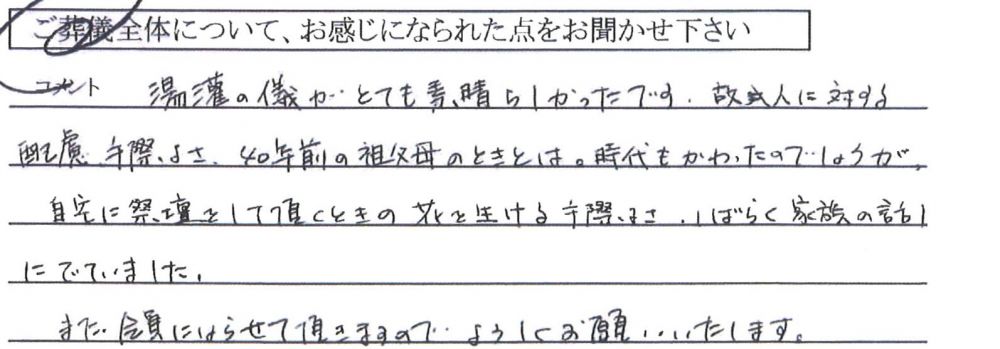 ご葬儀全体について、お感じになられた点をお聞かせ下さい
コメント 湯灌の儀がとても素晴らしかったです。故人に対する
配慮、手際よさ、40年前の祖父母のときとは。時代もかわったのでしょうが、
自宅に祭壇として頂くときの花を生ける手際よさ、しばらく家族の話し
にでていました。
また会員にならせて頂きますので、よろしくお願いいたします。